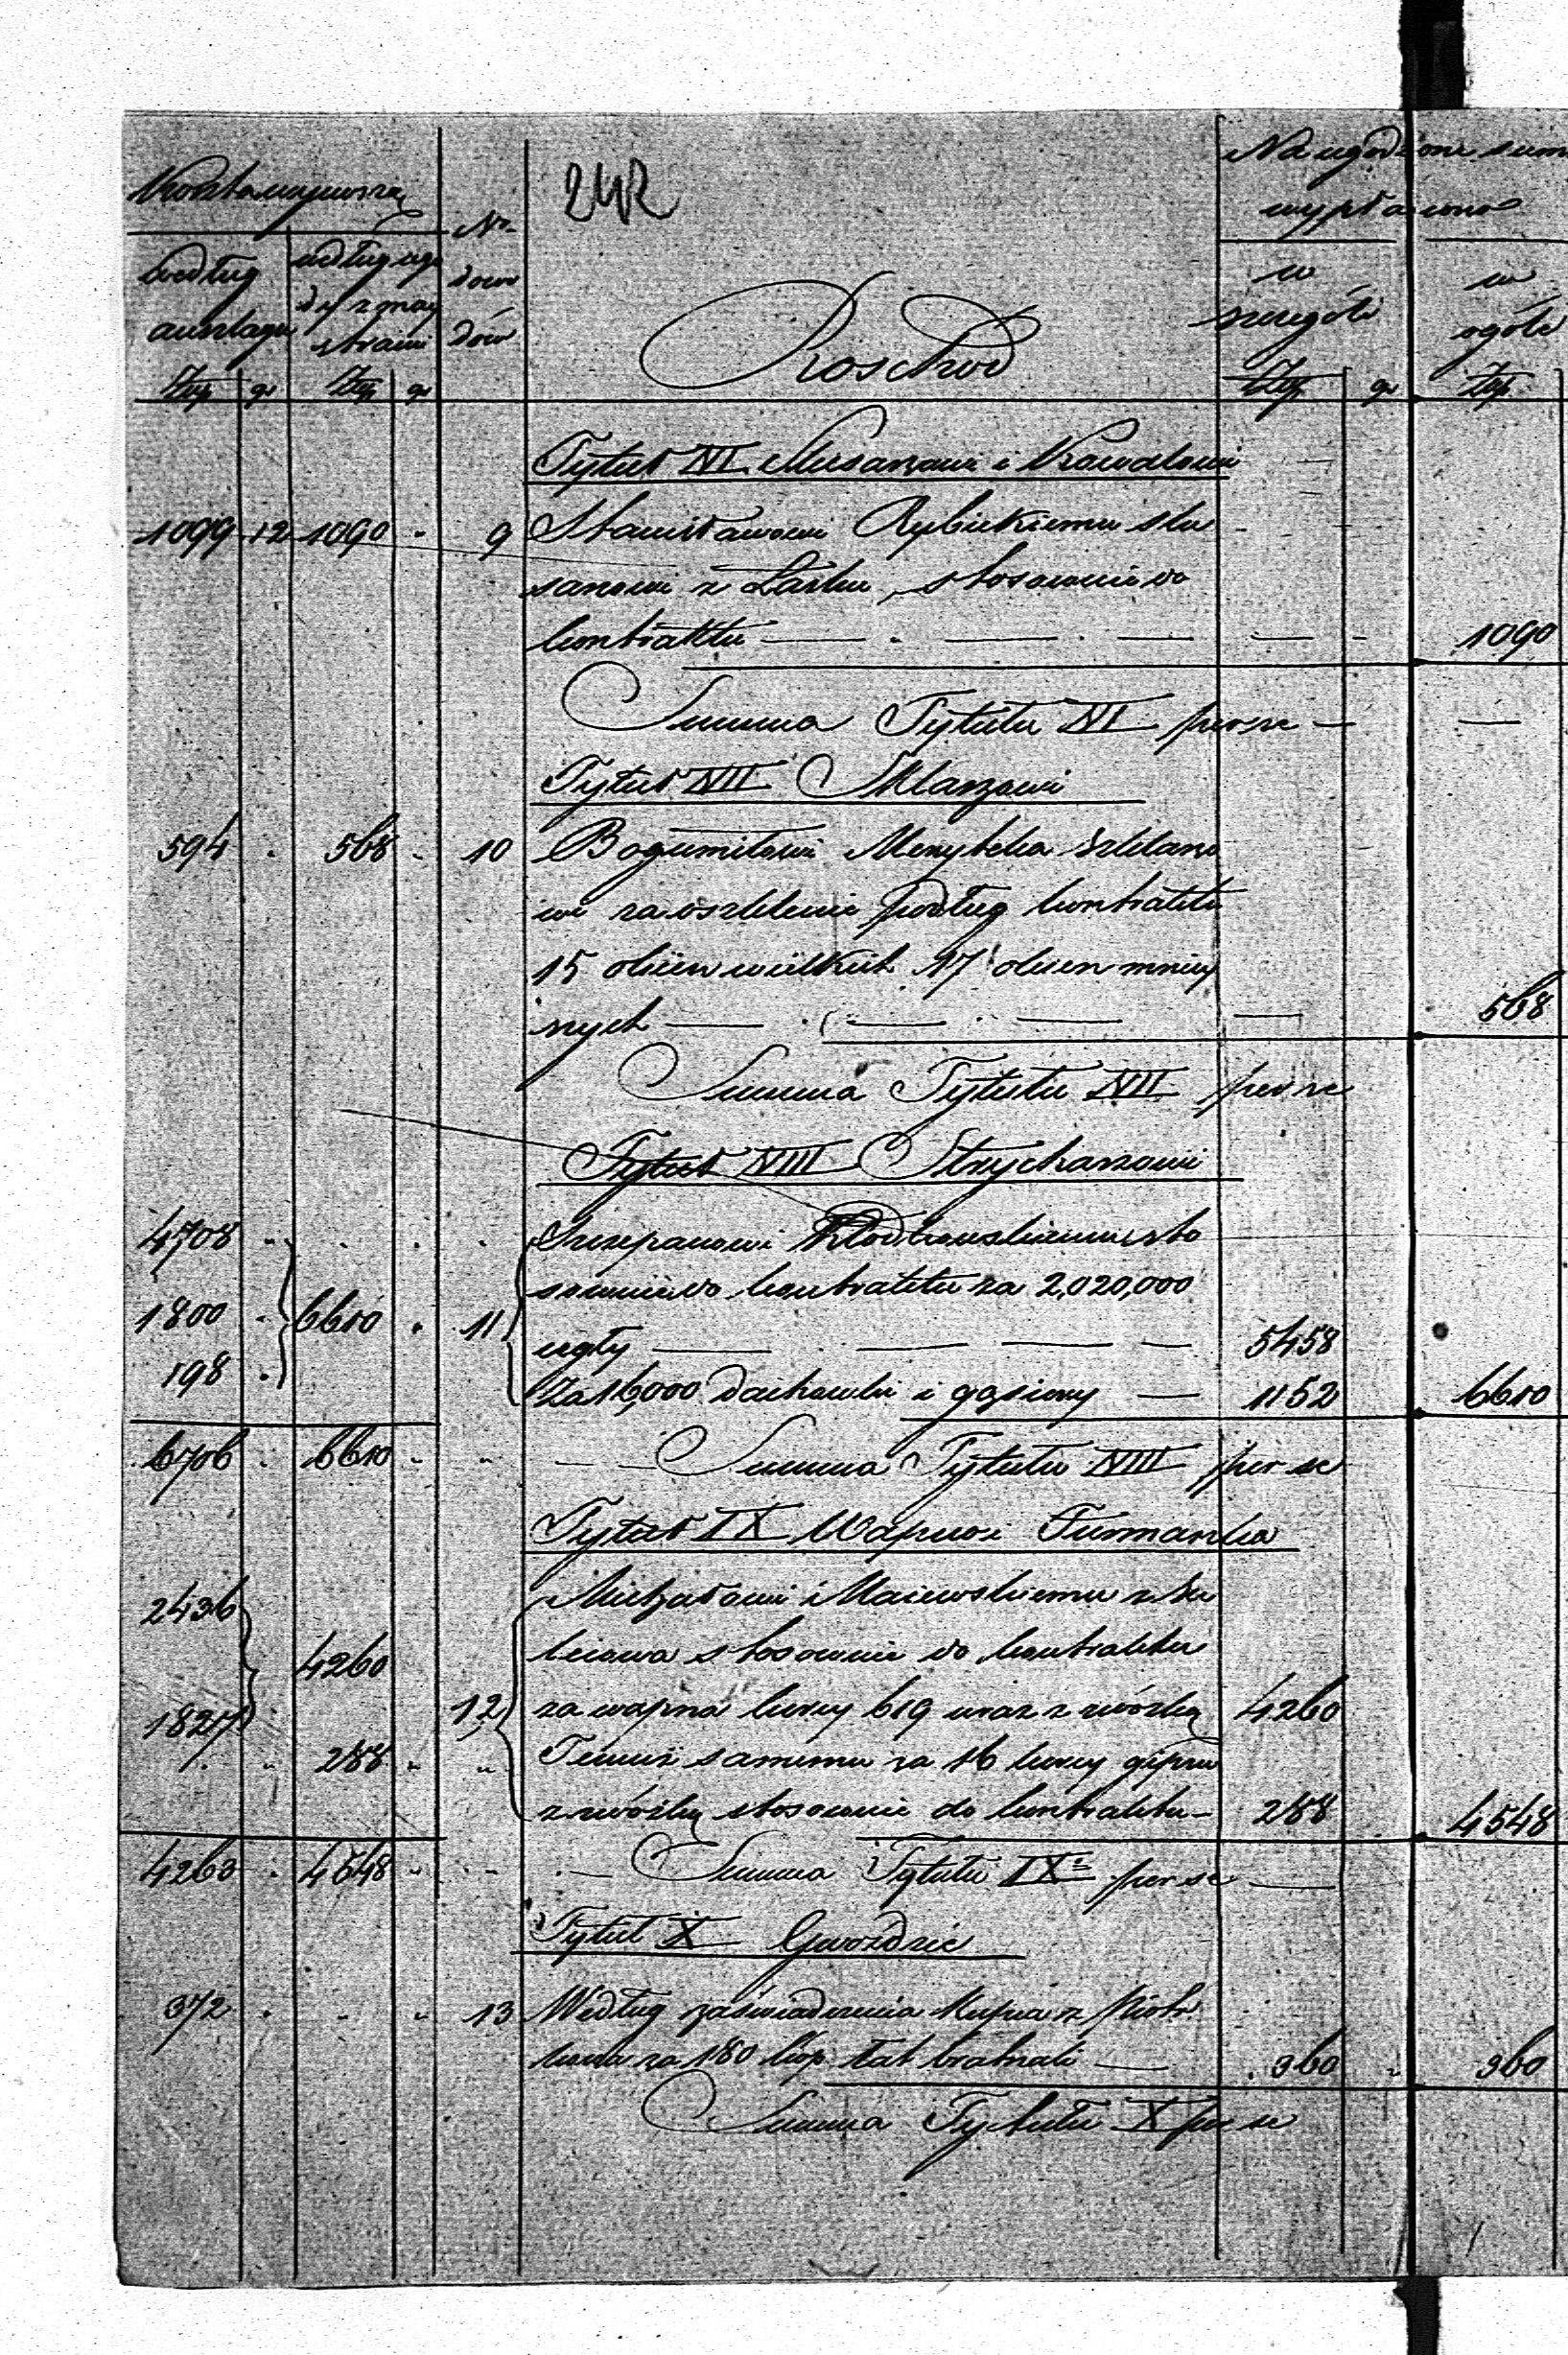 242
Koszta wynoszą
No dowodów
Na ugodzone summ
wypłacono
według
anszlagu
według ugody z maystrami
w
szczególe
w
ogóle
Złp gr Złp gr
Roschod
Złp gr Złp
Tytuł VI Slusarzowi i Kowalowi
1099 12 1090 - 9 Stanisławowi Rybickiemu slu
sarzowi z Łasku, stosownie do
kontraktu — 1090
Summa Tytułu VI per se —
Tytuł VII Sklarzowi
594 . 568 - 10 Bogumiłowi szklarzo
wi za oszklenie podług kontraktu
15 okien wielkich 17 okien mniey
szych — 568
Summa Tytułu VII per se
Tytuł VIII Strycharzowi
4708 - Szczepanowi sto
sownie do kontraktu za 2,020,000
1800 - 6610 . 11 cegły — 5458
198 . Za 16,000 dachówki i gąsiory — 1152 6610
6706 . 6610 - Summa Tytułu VIII per se
Tytuł IX Wapno i Furmanka
2436 Michałowi Maiewskiemu z
4260 stosownie do kontraktu
1827 12 za wapna korcy 619 wraz z zwózką 4260
288 Temuż samemu za 16 korcy gipsu
z zwózką stosownie do kontraktu - 288 4548
4263 . 4548 - Summa Tytułu IX per se —
Tytuł X Gwoździe
372 . 13 Według zaświadczenia Kupca z Piotr
kowa za 180 kóp łat bratnali — 360 360
Summa Tytułu X per se